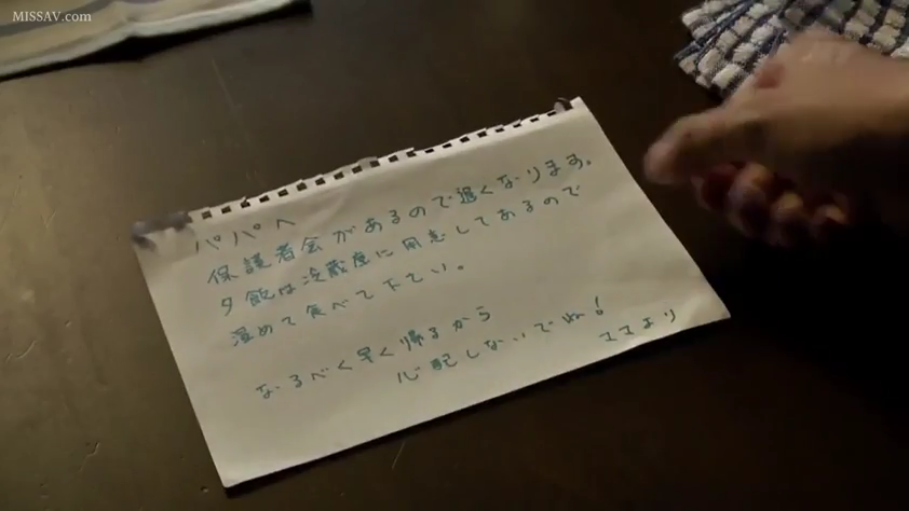 MISSAV.com
パパへ
保護者会があるので遅くなります。
夕飯は冷蔵庫に用意してあるので
温めて食べて下さい。
なるべく早く帰るから
心配しないでね！
ママより